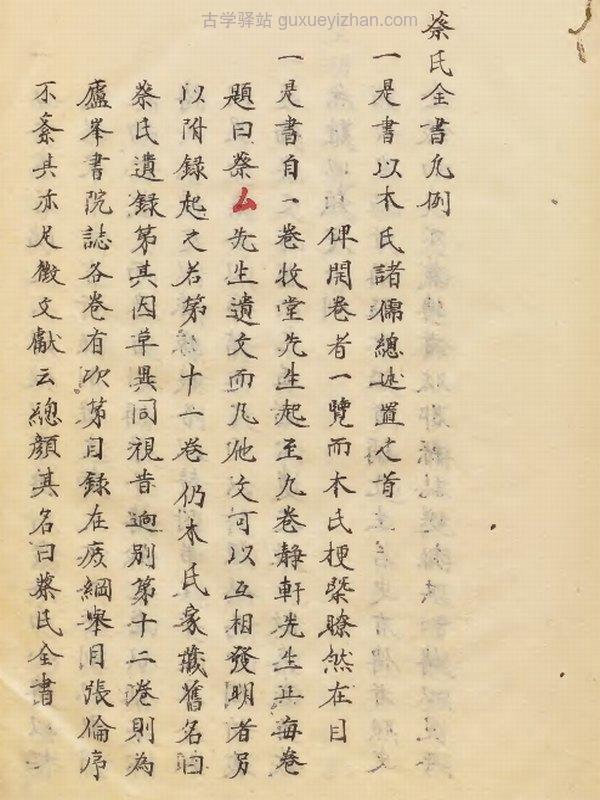 古学驿站 guxueyizhan.com
蔡氏全書凡例
一是書以本氏諸儒總述置之首
俾閱卷者一覽而本氏梗槩瞭然在目
一是書自一卷牧堂先生起至九卷靜軒先生止每卷
題曰蔡厶先生遺文而凡他文可以互相發明者另
以附録起之若第十一卷仍本氏家藏舊名曰
蔡氏遺録第其因草異同視昔逈別第十二卷則為
廬峯書院誌各卷有次第目録在焉綱舉目張倫序
不紊其亦足徵文獻云總顔其名曰蔡氏全書